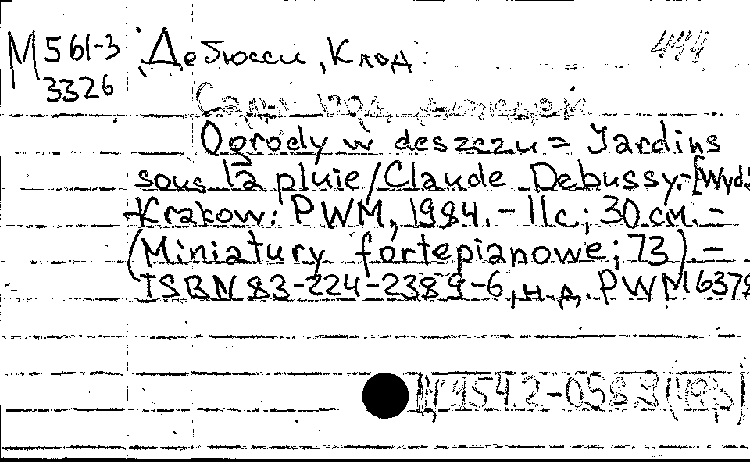 М 561-3 Дебюсси, Клод.
3326
Сады под дождем
Ogrody w deszczu = Jardins
sous la pluie / Claude Debussy. - [Wyd.
Krakow: PWM, 1984. - 11с; 30 см. -
(Miniatury fortepianowe; 73). -
ISBN 83-224-2389-6, н.д. PWM 6378